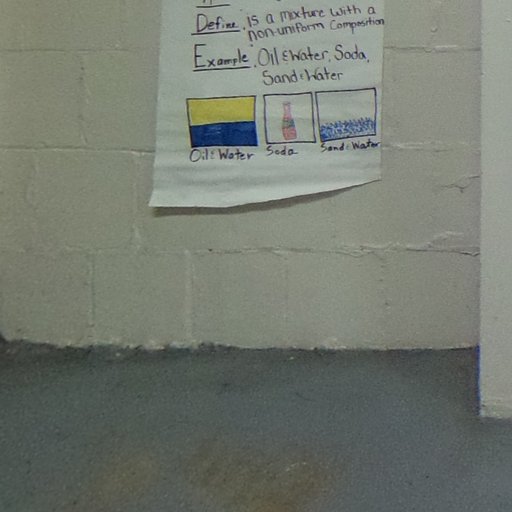 Define: is a mixture with a
non-uniform Composition
Example: Oil & Water, Soda,
Sand & Water
Oil & Water Soda Sand & Water